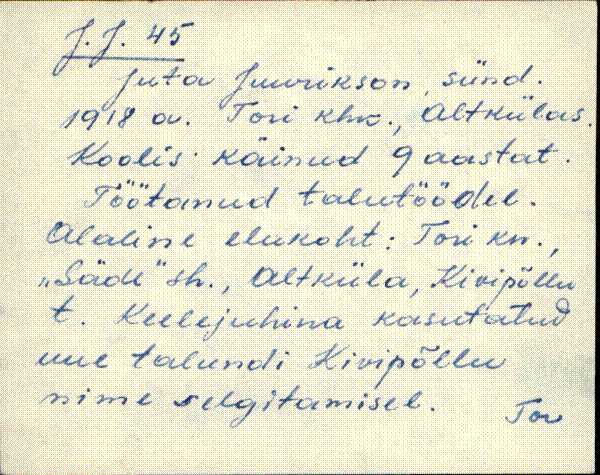 J. J. 45
Juta Juurikson, sünd.
1918 a. Tori khk., Altkülas.
Koolis käinud 9 aastat.
Töötanud talutöödel.
Alaline elukoht: Tori kn.,
„Säde" sh., Altküla, Kivipõllu
t. Keelejuhina kasutatud
uue talundi Kivipõllu
nime selgitamisel.
Tor